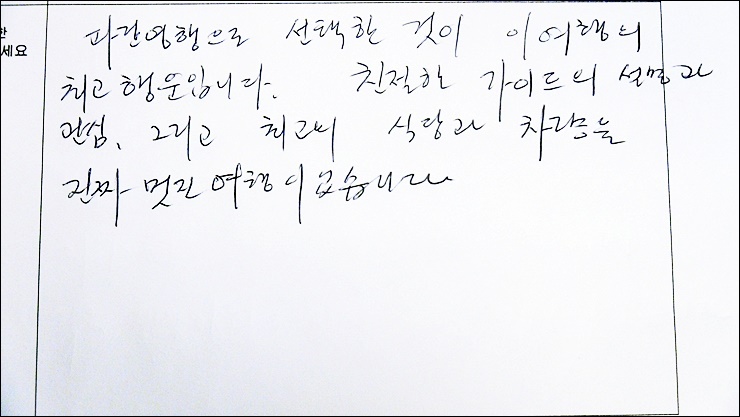 한
세요
파란여행으로 선택한 것이 이 여행의
최고 행운입니다. 친절한 가이드의 설명과
관심, 그리고 최고의 식당과 차량은
진짜 멋진 여행이었습니다